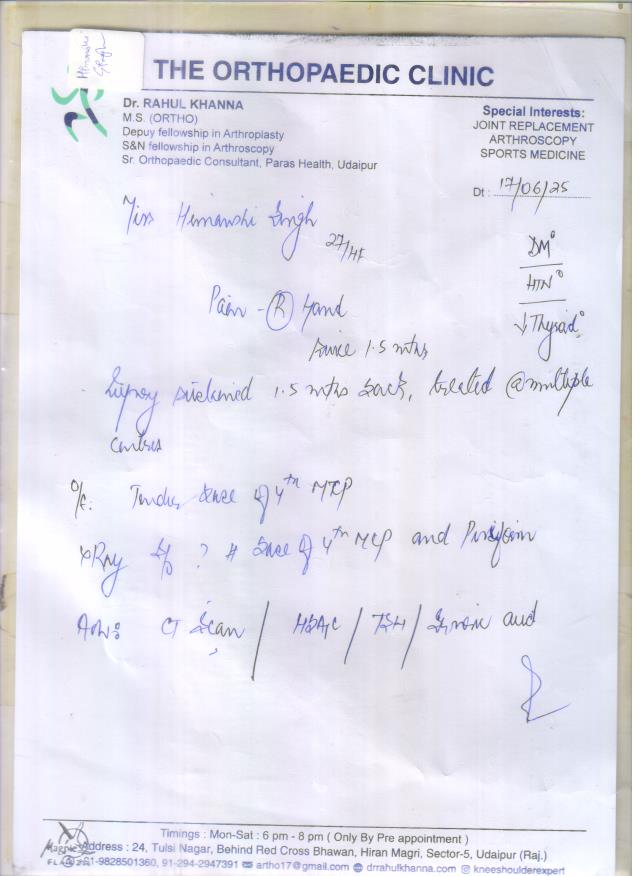 Himanshi
Singh
THE ORTHOPAEDIC CLINIC
Dr. RAHUL KHANNA
M.S. (ORTHO)
Depuy fellowship in Arthroplasty
S&N fellowship in Arthroscopy
Sr. Orthopaedic Consultant, Paras Health, Udaipur
Special Interests:
JOINT REPLACEMENT
ARTHROSCOPY
SPORTS MEDICINE
Dt : 17/06/25
Miss Himanshi Singh
27/
DM°
HTN°
↓ Thyroid°
Pain - (R) Hand
since 1.5 mths
Injury sustained 1.5 mths back, treated @ multiple
centres
O/E: Tender base of 4th MCP
XRay S/o ? # base of 4th MCP and
Adv: CT Scan / HbA1c / TSH / Uric acid
Timings : Mon-Sat : 6 pm - 8 pm ( Only By Pre appointment )
Address : 24, Tulsi Nagar, Behind Red Cross Bhawan, Hiran Magri, Sector-5, Udaipur (Raj.)
+91-9828501360, 91-294-2947391 artho17@gmail.com drrahulkhanna.com kneeshoulderexpert